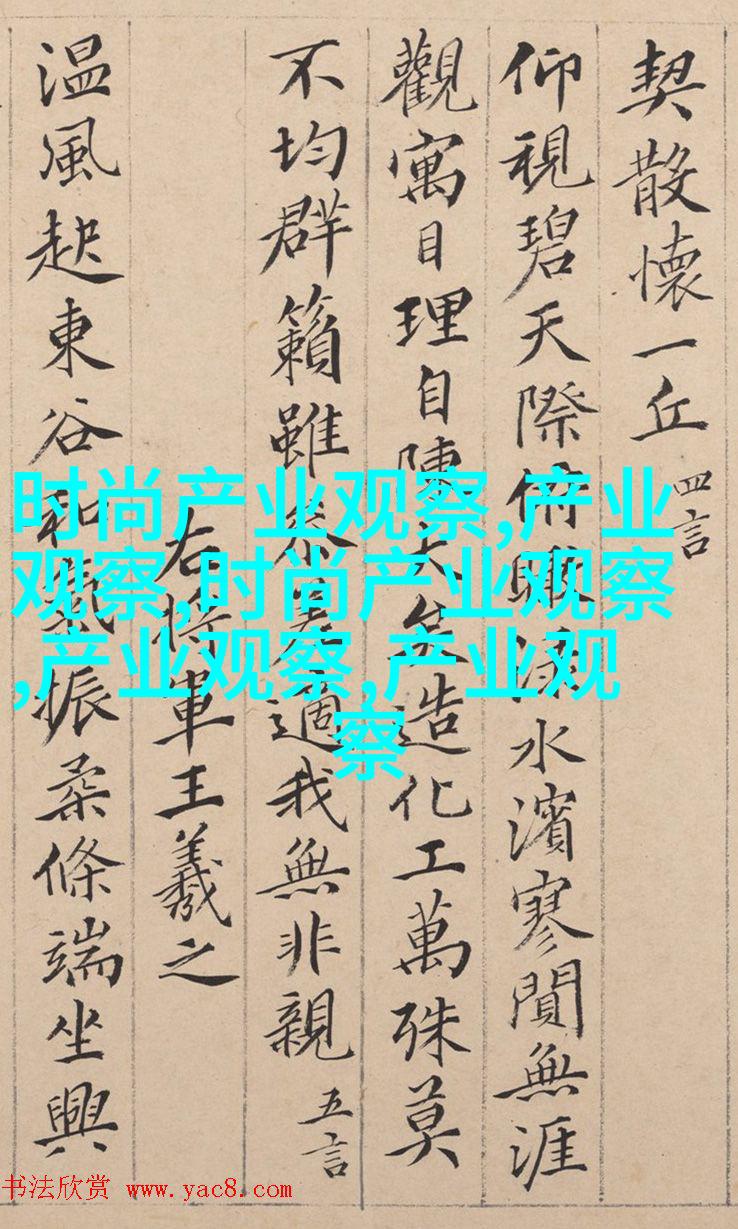 契散懷一丘 四言
仰視碧天際俯瞰淥水濱寥閴無涯
觀寓目理自陳大矣造化工萬殊莫
不均群籟雖參差適我無非親 五言
右將軍王羲之
温風起東谷和氣振柔條端坐興
时尚产业观察,产业
观察,时尚产业观察
,产业观察,产业观
察
书法欣赏 www.yac8.com